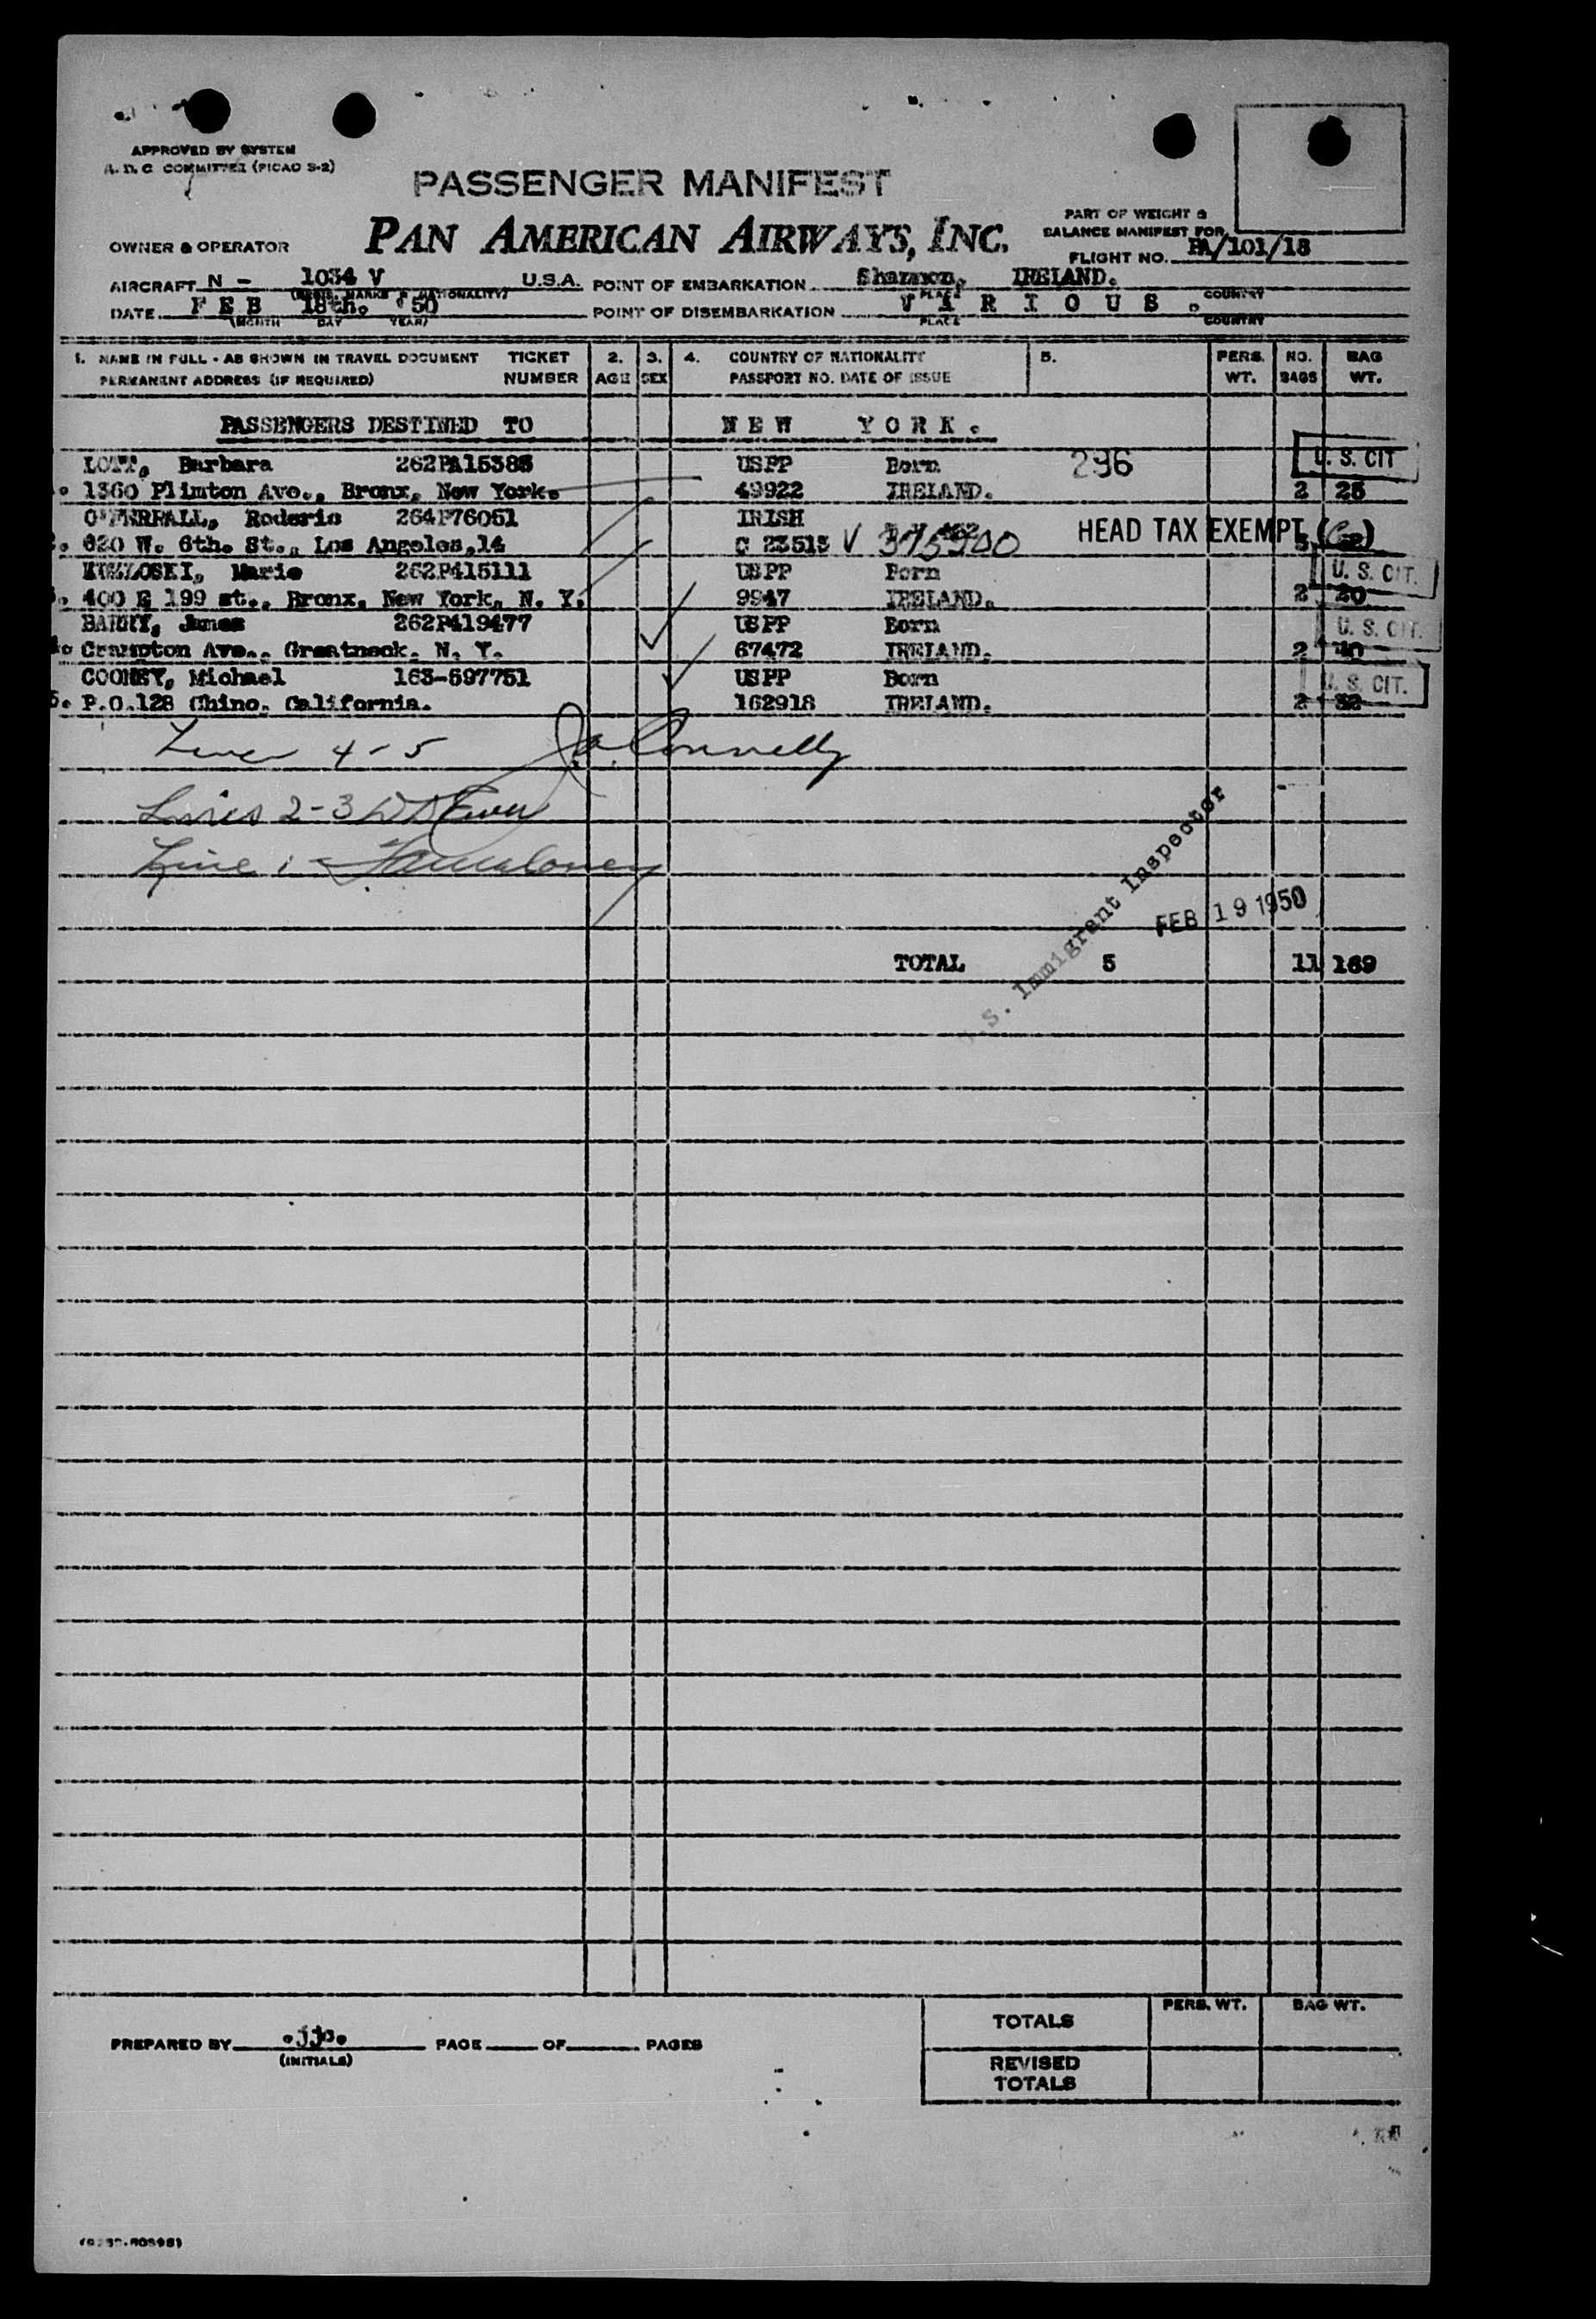 APPROVED BY SYSTEM
A. D. C COMMITTEE (PICAO S-2)
PASSENGER MANIFEST
PAN AMERICAN AIRWAYS, INC.
OWNER & OPERATOR
PART OF WEIGHT &
BALANCE MANIFEST FOR
FLIGHT NO. PA/101/18
AIRCRAFT N - 1034 V U.S.A. POINT OF EMBARKATION Shannon, IRELAND.
(REGIS. MARKS & NATIONALITY) PLACE COUNTRY
DATE FEB 18th. '50 POINT OF DISEMBARKATION V A R I O U S .
(MONTH DAY YEAR) PLACE COUNTRY
1. NAME IN FULL - AS SHOWN IN TRAVEL DOCUMENT TICKET 2. 3. 4. COUNTRY OF NATIONALITY 5. PERS. NO. BAG
PERMANENT ADDRESS (IF REQUIRED) NUMBER AGE SEX PASSPORT NO. DATE OF ISSUE WT. BAGS WT.
PASSENGERS DESTINED TO N E W Y O R K .
LOTT, Barbara 262PA15385 USPP Born 296 U. S. CIT
1360 Plimton Ave., Bronx, New York. 49922 IRELAND. 2 25
Roderic 264P76051 IRISH
2. 620 W. 6th. St., Los Angeles,14 C 23513 V HEAD TAX EXEMPT
Marie 262P415111 USPP Born U. S. CIT.
3. 400 E 199 st., Bronx, New York, N. Y. 9947 IRELAND. 2 20
BARRY, James 262P419477 USPP Born U. S. CIT.
4. Ave., Greatneck. N. Y. 67472 IRELAND. 2 40
COONEY, Michael 163-597751 USPP Born U. S. CIT.
5. P.O.128 Chino. California. 162918 IRELAND. 2 32
4-5 Connelly
Lines 2-3
Line 1
U.S. Immigrant Inspector
FEB 19 1950
TOTAL 5 11 169
PERS. WT. BAG WT.
TOTALS
PREPARED BY .jjo. PAGE OF PAGES
(INITIALS)
REVISED
TOTALS